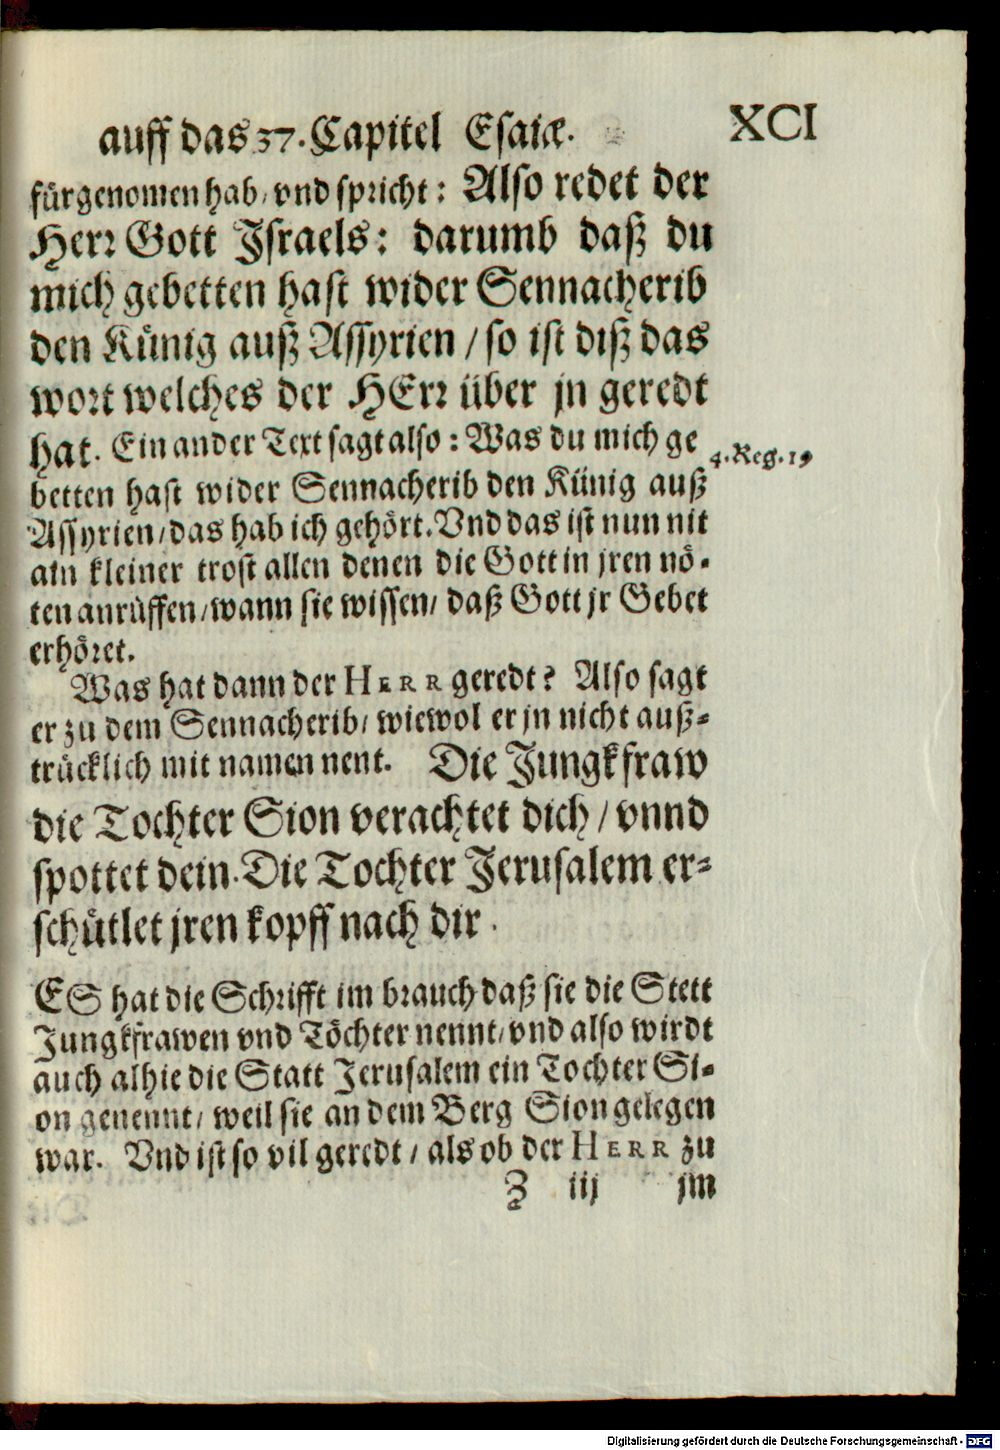 auff das 37. Capitel Esaiæ. XCI
fürgenomen hab/ vnd spricht: Also redet der
Herr Gott Israels: darumb daß du
mich gebetten hast wider Sennacherib
den Künig auß Assyrien / so ist diß das
wort welches der HErr über jn geredt
hat. Ein ander Text sagt also: Was du mich ge
4. Reg. 19
betten hast wider Sennacherib den Künig auß
Assyrien/ das hab ich gehört. Vnd das ist nun nit
ain kleiner trost allen denen die Gott in jren nö-
ten anrüffen/ wann sie wissen/ daß Gott jr Gebet
erhöret.
Was hat dann der HERR geredt? Also sagt
er zu dem Sennacherib/ wiewol er jn nicht auß-
trücklich mit namen nent. Die Jungkfraw
die Tochter Sion verachtet dich / vnnd
spottet dein. Die Tochter Jerusalem er-
schütlet jren kopff nach dir.
ES hat die Schrifft im brauch daß sie die Stett
Jungkfrawen vnd Töchter nennt/ vnd also wirdt
auch alhie die Statt Jerusalem ein Tochter Si-
on genennt/ weil sie an dem Berg Sion gelegen
war. Vnd ist so vil geredt / als ob der HERR zu
Z iij jm
Digitalisierung gefördert durch die Deutsche Forschungsgemeinschaft - DFG